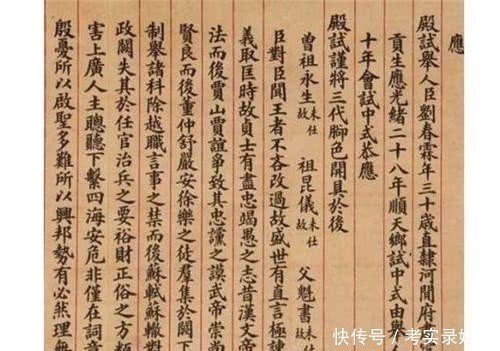 應
殿試舉人臣劉春霖年三十歲直隸河間府
貢生應光緒二十八年順天鄉試中式由舉
十年會試中式恭應
殿試謹將三代腳色開具於後
曾祖永生未仕故 祖昆儀未仕故 父魁書未仕故
臣對臣聞王者不吝改過故盛世有直言極諫
義取匡時故貞士有盡忠竭愚之志昔漢文帝
法而後賈山賈誼爭致其忠讜之謨武帝崇尚
賢良而後董仲舒嚴安徐樂之徒羣集於闕下
制舉諸科除越職言事之禁而後蘇軾蘇轍對
政闕失其於任官治兵之要裕財正俗之方類
害上廣人主聰聽下繫四海安危非僅在詞章
殷憂所以啟聖多難所以興邦勢有必然理無
快传号/考实录